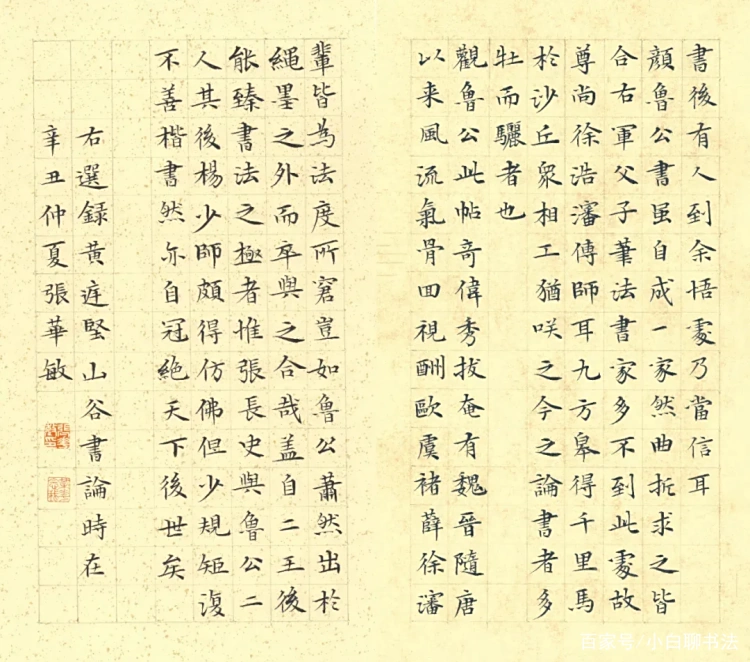 書後有人到余悟處乃當信耳
顏魯公書虽自成一家然曲折求之皆
合右軍父子筆法書家多不到此處故
尊尚徐浩瀋傳師耳九方皋得千里馬
於沙丘衆相工猶咲之今之論書者多
牡而驪者也
觀魯公此帖奇偉秀拔奄有魏晉隨唐
以来風流氣骨回視酬歐虞褚薛徐瀋
輩皆為法度所窘豈如魯公蕭然出於
繩墨之外而卒與之合哉盖自二王後
能臻書法之極者惟張長史與魯公二
人其後楊少師頗得仿佛但少規矩復
不善楷書然亦自冠絶天下後世矣
右選録黄庭堅山谷書論時在
辛丑仲夏張華敏
百家号/小白聊书法